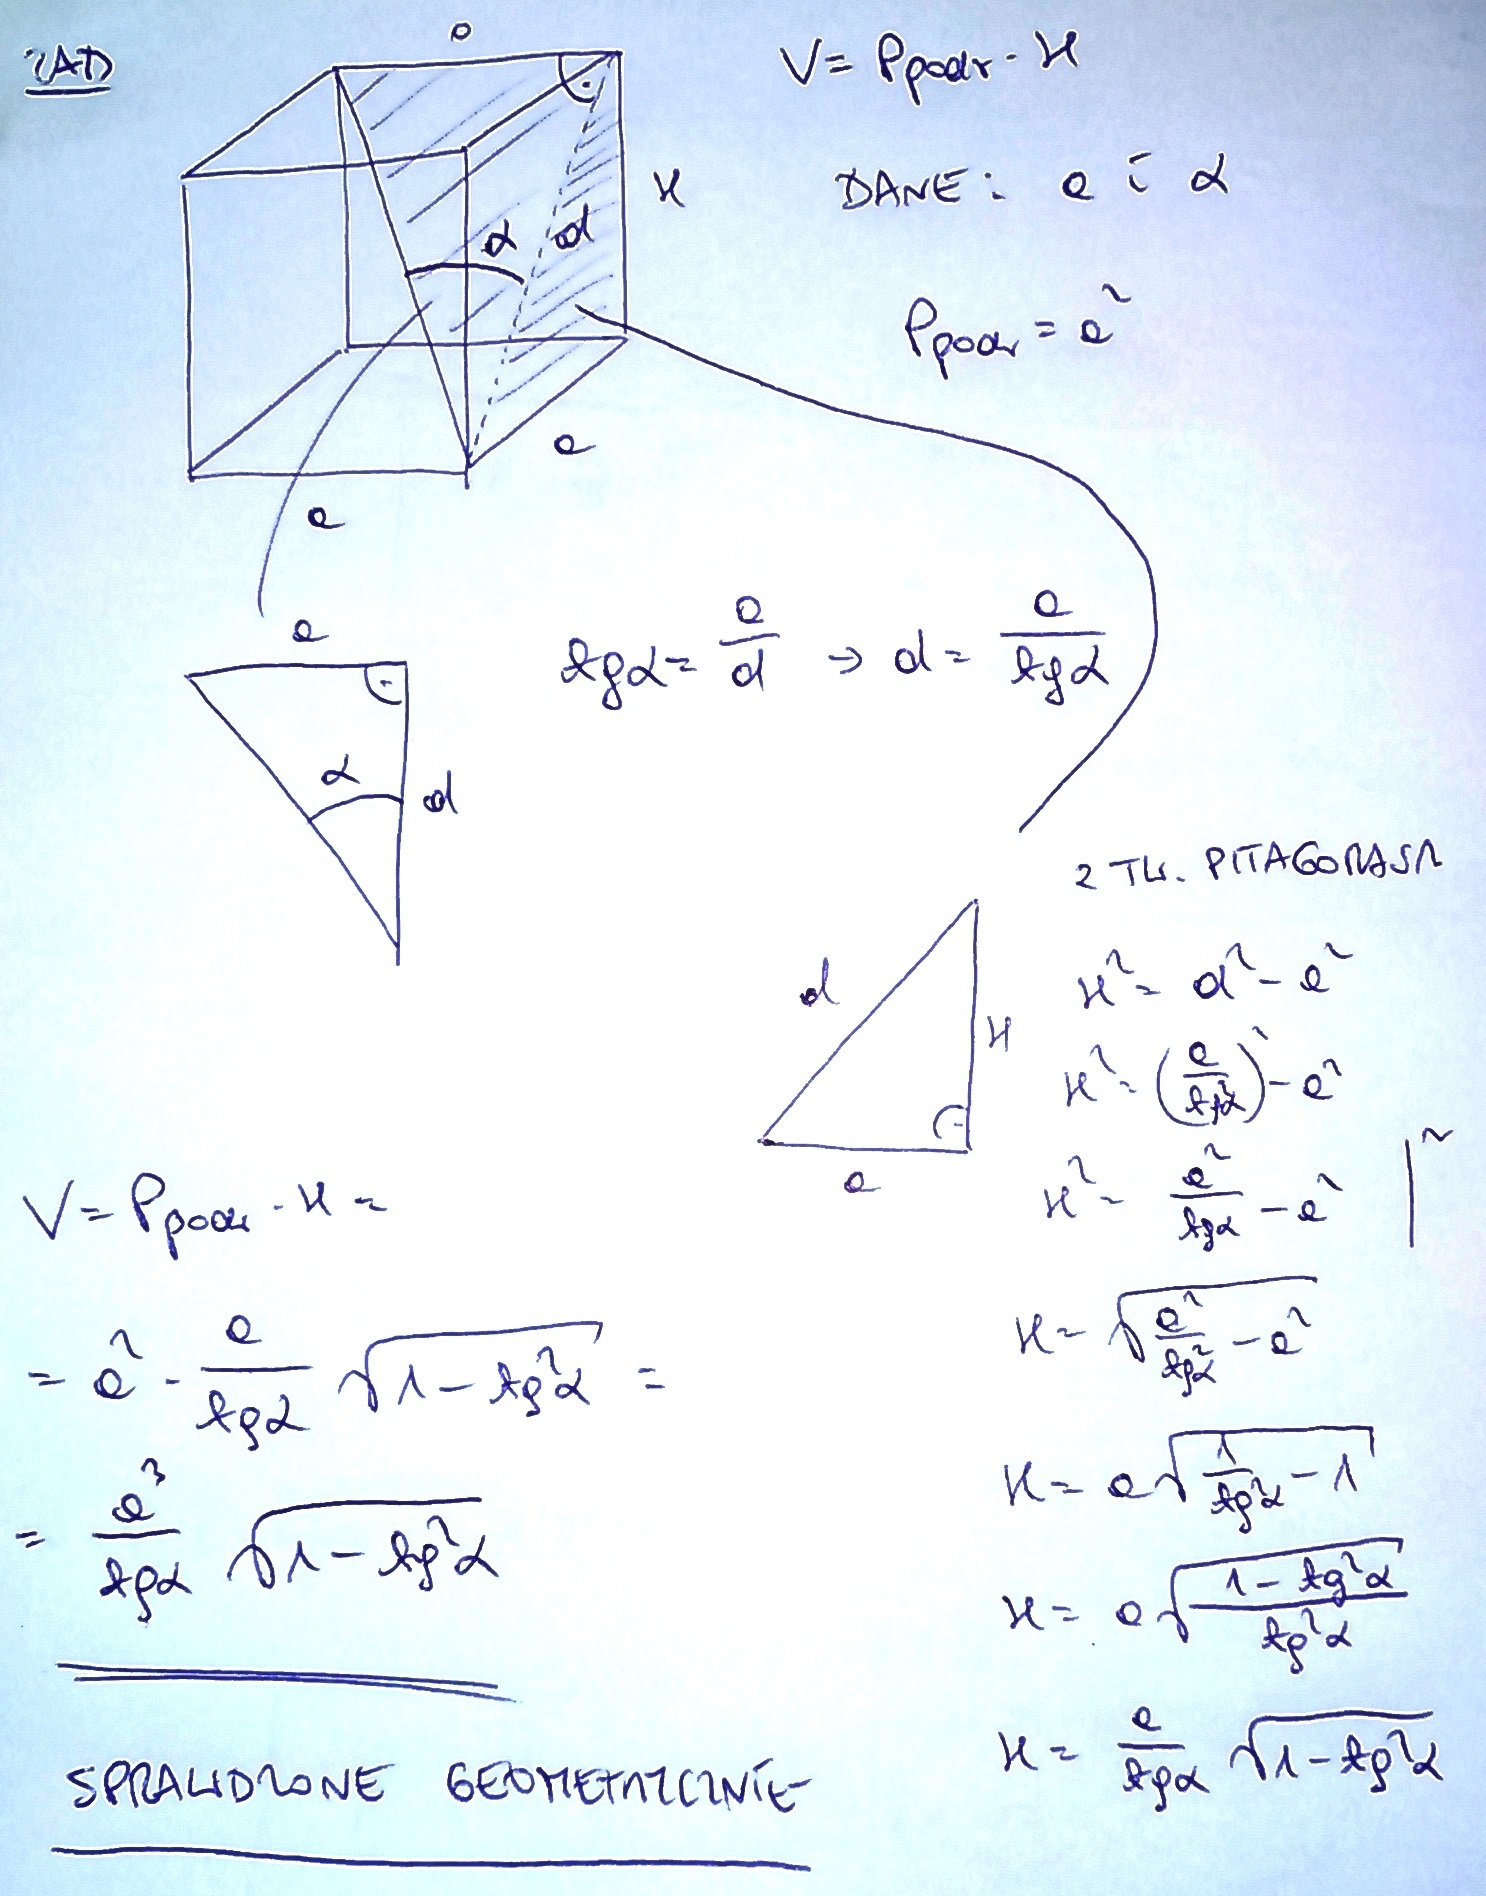 ZAD
a
V = Ppodr · H
H
DANE: a i α
α d
Ppodr = a²
a
a
a
tgα = a/d → d = a/tgα
α
d
z TW. PITAGORASA
d
H
a
H² = d² - a²
H² = (a/tgα)² - a²
H² = a²/tgα - a² |²
H = √(a²/tg²α - a²)
H = a√(1/tg²α - 1)
H = a√((1 - tg²α)/tg²α)
H = a/tgα √(1 - tg²α)
V = Ppodr · H =
= a² · a/tgα √(1 - tg²α) =
= a³/tgα √(1 - tg²α)
SPRAWDZONE GEOMETRYCZNIE